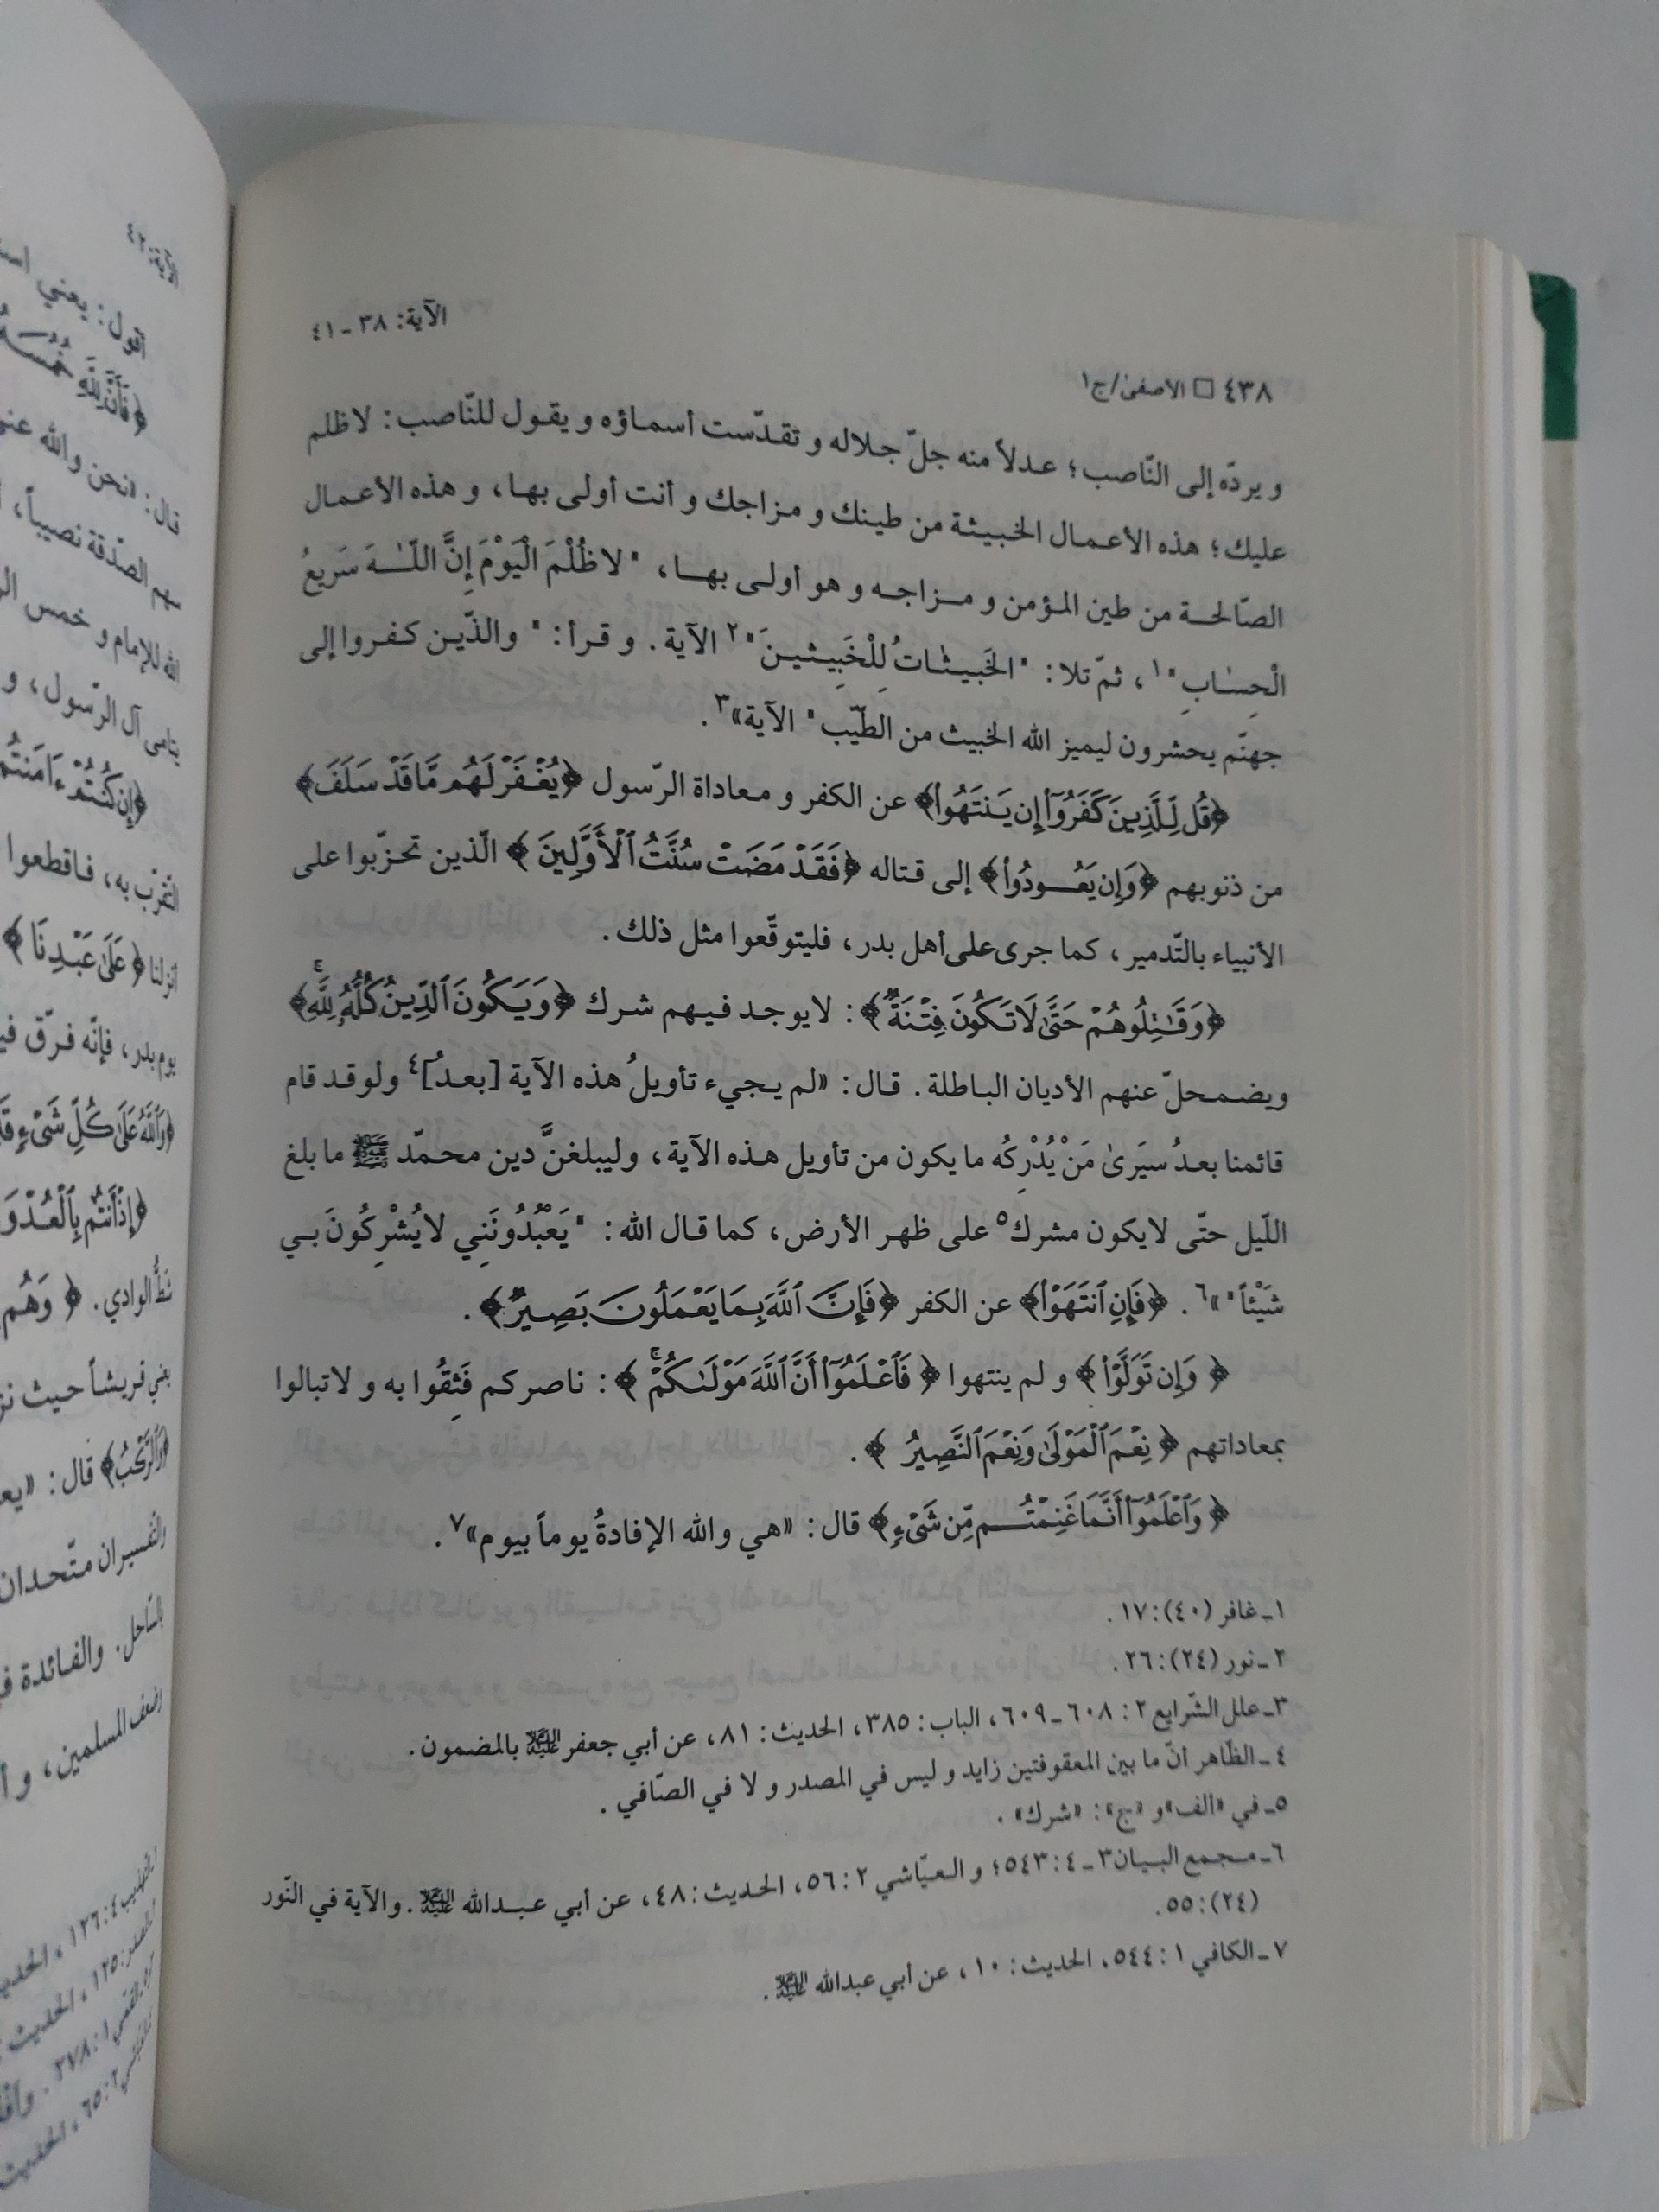 ٤٣٨ □ الأصفى/ج١
الآية: ٣٨ ـ ٤١
و يردّه إلى النّاصب؛ عدلاً منه جلّ جلاله و تقدّست أسماؤه و يقول للنّاصب: لاظلم
عليك؛ هذه الأعمال الخبيثة من طينك و مزاجك و أنت أولى بها، و هذه الأعمال
الصّالحة من طين المؤمن و مزاجه و هو أولى بها، "لاظُلْمَ الْيَوْمَ إِنَّ اللّٰهَ سَريعُ
الْحِسٰابِ"١، ثمّ تلا: "الخَبيثٰاتُ لِلْخَبِيثينَ"٢ الآية. و قرأ: "والذّين كفروا إلى
جهنّم يحشرون ليميز الله الخبيث من الطّيّب" الآية»٣.
﴿قُل لِّلَّذِينَ كَفَرُوٓاْ إِن يَنتَهُواْ﴾ عن الكفر و معاداة الرّسول ﴿يُغْفَرْ لَهُم مَّا قَدْ سَلَفَ﴾
من ذنوبهم ﴿وَإِن يَعُودُواْ﴾ إلى قتاله ﴿فَقَدْ مَضَتْ سُنَّتُ ٱلْأَوَّلِينَ﴾ الّذين تحزّبوا على
الأنبياء بالتّدمير، كما جرى على أهل بدر، فليتوقّعوا مثل ذلك.
﴿وَقَٰتِلُوهُمْ حَتَّىٰ لَا تَكُونَ فِتْنَةٌ﴾: لايوجد فيهم شرك ﴿وَيَكُونَ ٱلدِّينُ كُلُّهُ لِلَّهِۚ﴾
ويضمحلّ عنهم الأديان الباطلة. قال: «لم يجيء تأويلُ هذه الآية [بعدُ]٤ ولوقد قام
قائمنا بعدُ سيَرىٰ مَنْ يُدْرِكُه ما يكون من تأويل هذه الآية، وليبلغنَّ دين محمّد ﷺ ما بلغ
اللّيل حتّى لايكون مشرك٥ على ظهر الأرض، كما قال الله: "يَعْبُدُونَني لايُشْرِكُونَ بي
شَيْئاً"»٦. ﴿فَإِنِ ٱنتَهَوْاْ﴾ عن الكفر ﴿فَإِنَّ ٱللَّهَ بِمَا يَعْمَلُونَ بَصِيرٌ﴾.
﴿وَإِن تَوَلَّوْاْ﴾ و لم ينتهوا ﴿فَٱعْلَمُوٓاْ أَنَّ ٱللَّهَ مَوْلَىٰكُمْۚ﴾: ناصركم فَثِقُوا به و لاتبالوا
بمعاداتهم ﴿نِعْمَ ٱلْمَوْلَىٰ وَنِعْمَ ٱلنَّصِيرُ﴾.
﴿وَٱعْلَمُوٓاْ أَنَّمَا غَنِمْتُم مِّن شَىْءٍ﴾ قال: «هي والله الإفادةُ يوماً بيوم»٧.
١ـ غافر (٤٠): ١٧.
٢ـ نور (٢٤): ٢٦.
٣ـ علل الشّرايع ٢: ٦٠٨ ـ ٦٠٩، الباب: ٣٨٥، الحديث: ٨١، عن أبي جعفر عليه السلام بالمضمون.
٤ـ الظّاهر أنّ ما بين المعقوفتين زايد و ليس في المصدر و لا في الصّافي.
٥ـ في «الف» و «ج»: «شرك».
٦ـ مجمع البيان ٣ ـ ٤: ٥٤٣؛ و العيّاشي ٢: ٥٦، الحديث: ٤٨، عن أبي عبدالله عليه السلام. والآية في النّور
(٢٤): ٥٥.
٧ـ الكافي ١: ٥٤٤، الحديث: ١٠، عن أبي عبدالله عليه السلام.
الآية: ٤٢
أقول: يعني
﴿فَأَنَّ لِلَّهِ
قال: «نحن والله
سهم الصّدقة نصيباً،
لله للإمام و خمس
يتامى آل الرّسول، و
﴿إِن كُنتُمْ ءَامَنتُم
التّقرّب به، فاقطعوا
انزلنا ﴿عَلَىٰ عَبْدِنَا﴾
يوم بدر، فإنّه فرّق
﴿وَٱللَّهُ عَلَىٰ كُلِّ شَىْءٍ
﴿إِذْ أَنتُم
شطُّ الوادي. ﴿وَهُم
يعني قريشاً حيث
﴿وَٱلرَّكْبُ﴾ قال:
والتّفسيران متّحدان
بالسّاحل. والفائدة
ضعف المسلمين، و
٤: ١٢٦، الحديث
١٢٥، الحديث
القمّي ١: ٢٧٨.
٢: ٦٥، الحديث